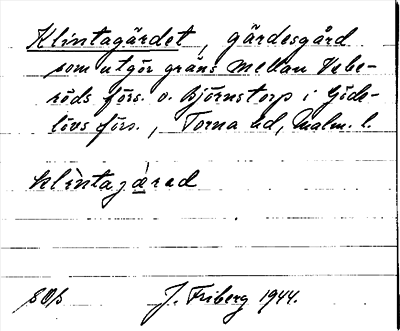 Klintagärdet, gärdesgård
som utgör gräns mellan Vebe-
röds förs. o. Björnstorp i Göds-
lövs förs., Torna hd, Malm. l.
klìntagǽrad
J. Friberg 1944.